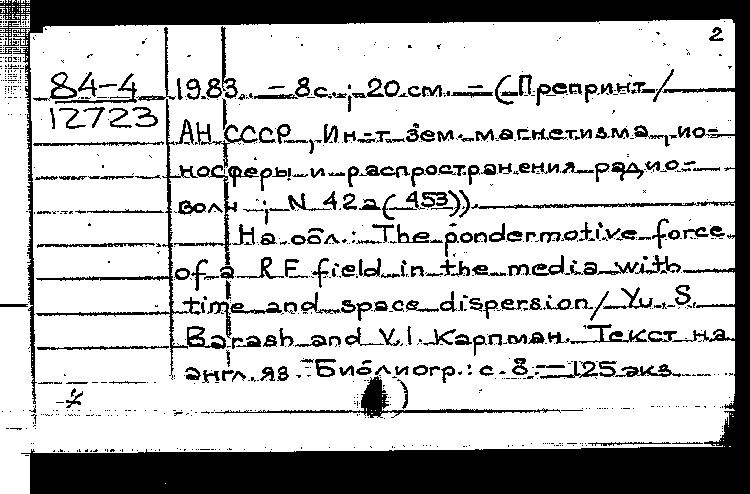 2
84-4
12723
1983. - 8 с. ; 20 см. - (Препринт /
АН СССР, Ин-т зем. магнетизма, ио-
носферы и распространения радио-
волн ; N 42а(453)).
На обл.: The pondermotive force
of a RF field in the media with
time and space dispersion / Yu. S.
Barash and V.I. Карпман. Текст на
англ. яз. - Библиогр.: с. 8. - 125 экз